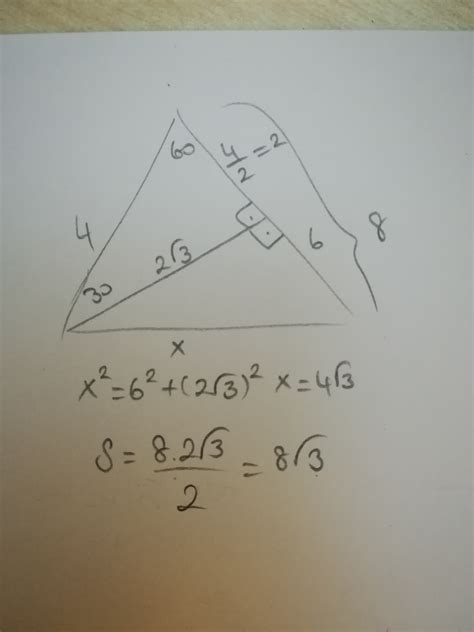 60
4/2=2
4
2√3
6
8
30
x
x²=6²+(2√3)² x=4√3
S=8.2√3/2=8√3